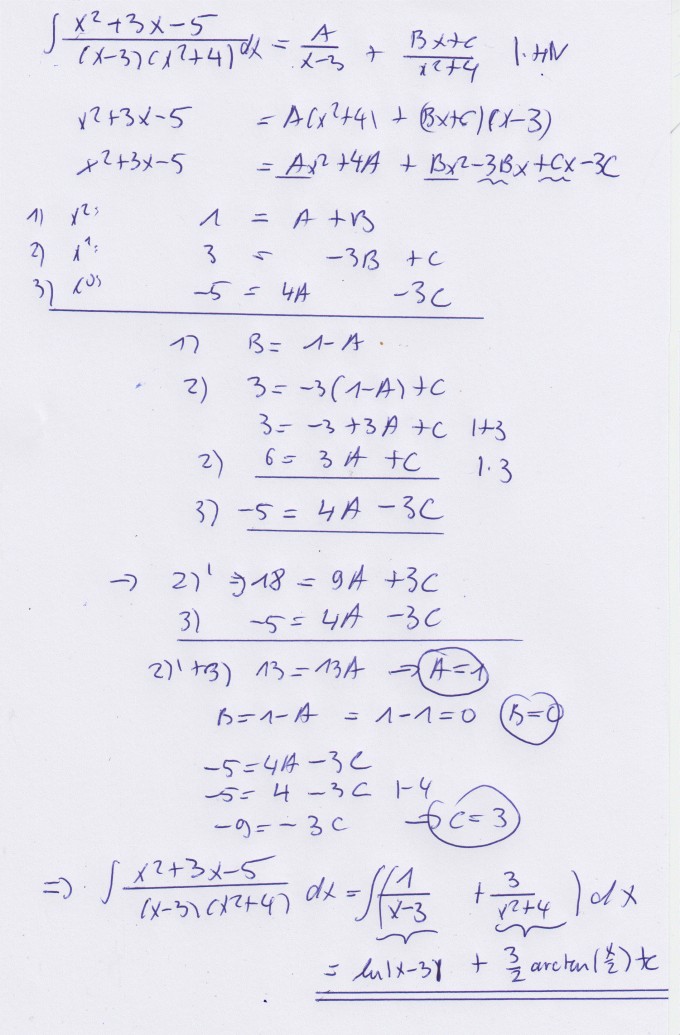 ∫ (x²+3x-5)/((x-3)(x²+4)) dx = A/(x-3) + (Bx+C)/(x²+4) |·HN
x²+3x-5 = A(x²+4) + (Bx+C)(x-3)
x²+3x-5 = Ax²+4A + Bx²-3Bx+Cx-3C
1) x²: 1 = A +B
2) x¹: 3 = -3B +C
3) x⁰: -5 = 4A -3C
1) B = 1-A
2) 3 = -3(1-A)+C
3 = -3+3A +C |+3
2) 6 = 3A +C |·3
3) -5 = 4A -3C
→ 2)' ⇒ 18 = 9A +3C
3) -5 = 4A -3C
2)'+3) 13=13A ⇒ A=1
B=1-A = 1-1=0 B=0
-5=4A-3C
-5= 4 -3C |-4
-9=-3C → C=3
⇒ ∫ (x²+3x-5)/((x-3)(x²+4)) dx = ∫(1/(x-3) + 3/(x²+4)) dx
= ln|x-3| + 3/2 arctan(x/2) +C